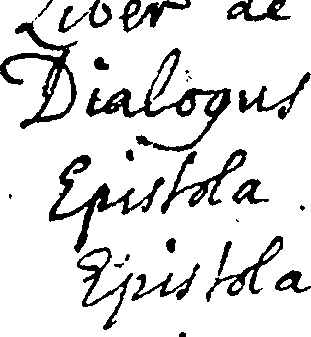 Liber de
Dialogus
Epistola
Epistola